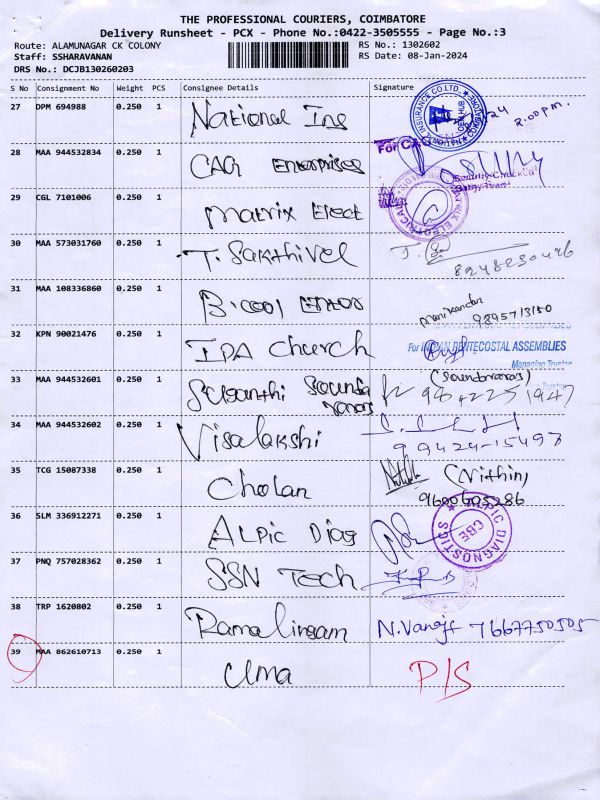 THE PROFESSIONAL COURIERS, COIMBATORE
Delivery Runsheet - PCX - Phone No.:0422-3505555 - Page No.:3
Route: ALAMUNAGAR CK COLONY RS No.: 1302602
Staff: SSHARAVANAN RS Date: 08-Jan-2024
DRS No.: DCJB130260203
S No Consignment No Weight PCS Consignee Details Signature
27 DPM 694988 0.250 1 National Ins 2.00 pm.
28 MAA 944532834 0.250 1 CAG Enterprises For CAG
29 CGL 7101006 0.250 1 Matrix Elect
30 MAA 573031760 0.250 1 T. Sakthivel
31 MAA 108336860 0.250 1 manikandan
32 KPN 90021476 0.250 1 IPA Church For INDIAN PENTECOSTAL ASSEMBLIES
Managing Trustee
33 MAA 944532601 0.250 1 Susanthi Sounda
34 MAA 944532602 0.250 1 Visalakshi 99424-15498
35 TCG 15087338 0.250 1 Cholan (Nithin)
9600605286
36 SLM 336912271 0.250 1 ALPIC Diag ALPIC DIAGNOSTICS CBE
37 PNQ 757028362 0.250 1 SSN Tech
38 TRP 1620802 0.250 1 Ramalingam 7667750505
39 MAA 862610713 0.250 1 Uma P/S